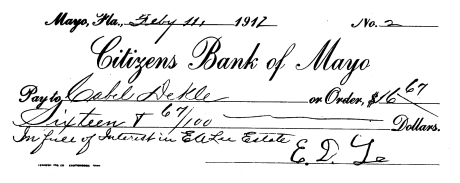 Mayo, Fla., Feby 11, 1917 No. 2
Citizens Bank of Mayo
Pay to Cabel Dekle or Order, $16 67
Sixteen & 67/100 Dollars.
In full of Interest in Estate
E. D.